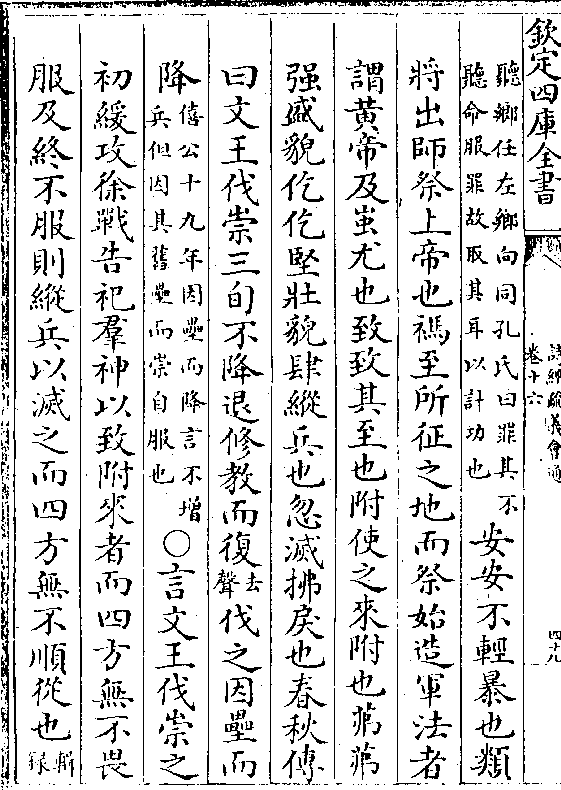 欽定四庫全書
詩經疏義會通
卷十六
四十九
聽鄉任左鄉向同孔氏曰罪其不
聽命服罪故取其耳以計功也
安安不輕暴也類
將出師祭上帝也禡至所征之地而祭始造軍法者
謂黄帝及蚩尤也致致其至也附使之來附也茀茀
强盛貌仡仡堅壯貌肆縱兵也忽滅拂戾也春秋傳
曰文王伐崇三旬不降退修教而復去聲伐之因壘而
降
僖公十九年因壘而降言不增
兵但因其舊壘而崇自服也
○言文王伐崇之
初緩攻徐戰告祀羣神以致附來者而四方無不畏
服及終不服則縱兵以滅之而四方無不順從也
輯録